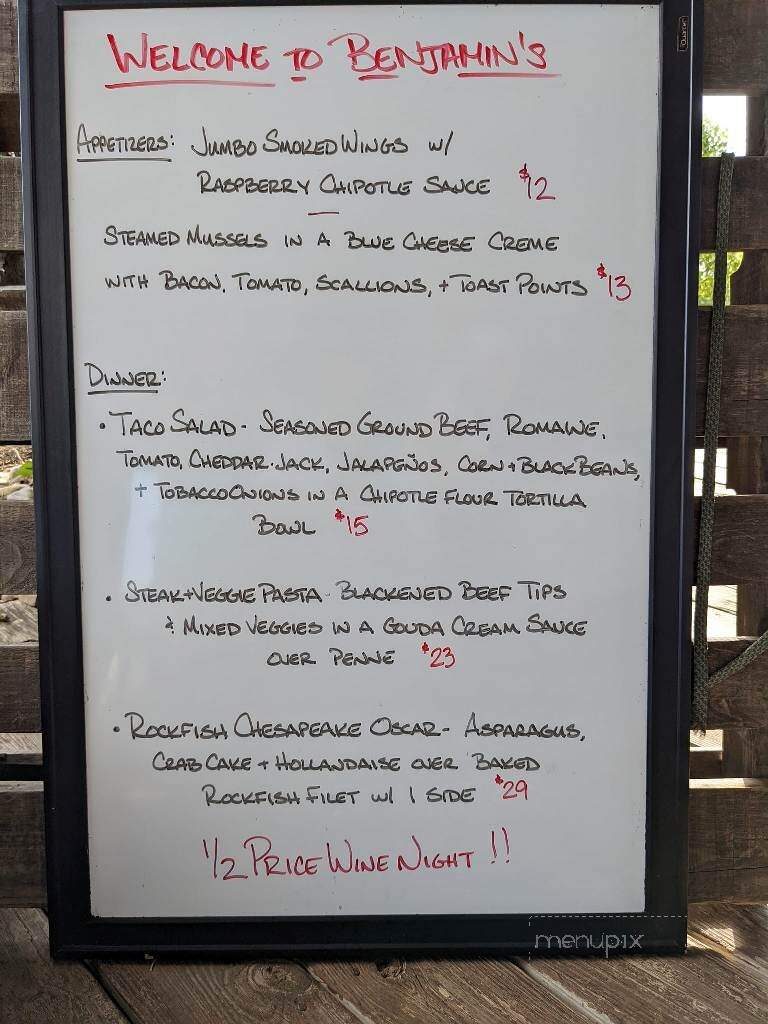 WELCOME TO BENJAMIN'S
APPETIZERS: JUMBO SMOKED WINGS W/
RASPBERRY CHIPOTLE SAUCE $12
STEAMED MUSSELS IN A BLUE CHEESE CREME
WITH BACON, TOMATO, SCALLIONS, + TOAST POINTS $13
DINNER:
• TACO SALAD - SEASONED GROUND BEEF, ROMAINE,
TOMATO, CHEDDAR-JACK, JALAPEÑOS, CORN + BLACK BEANS,
+ TOBACCO ONIONS IN A CHIPOTLE FLOUR TORTILLA
BOWL $15
• STEAK + VEGGIE PASTA - BLACKENED BEEF TIPS
& MIXED VEGGIES IN A GOUDA CREAM SAUCE
OVER PENNE $23
• ROCKFISH CHESAPEAKE OSCAR - ASPARAGUS,
CRAB CAKE + HOLLANDAISE OVER BAKED
ROCKFISH FILET W/ 1 SIDE $29
1/2 PRICE WINE NIGHT !!
menupix